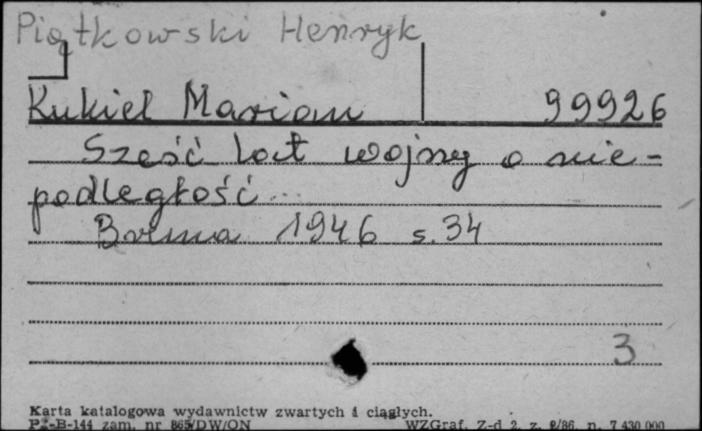 Piątkowski Henryk
Kukiel Marian 99926
Sześć lat wojny o nie-
podległość...
Brema 1946 s. 34
3
Karta katalogowa wydawnictw zwartych i ciągłych.
Pu-B-144 zam. nr 865/DW/ON WZGraf. Z-d 2, z. 2/86, n. 7 430 000